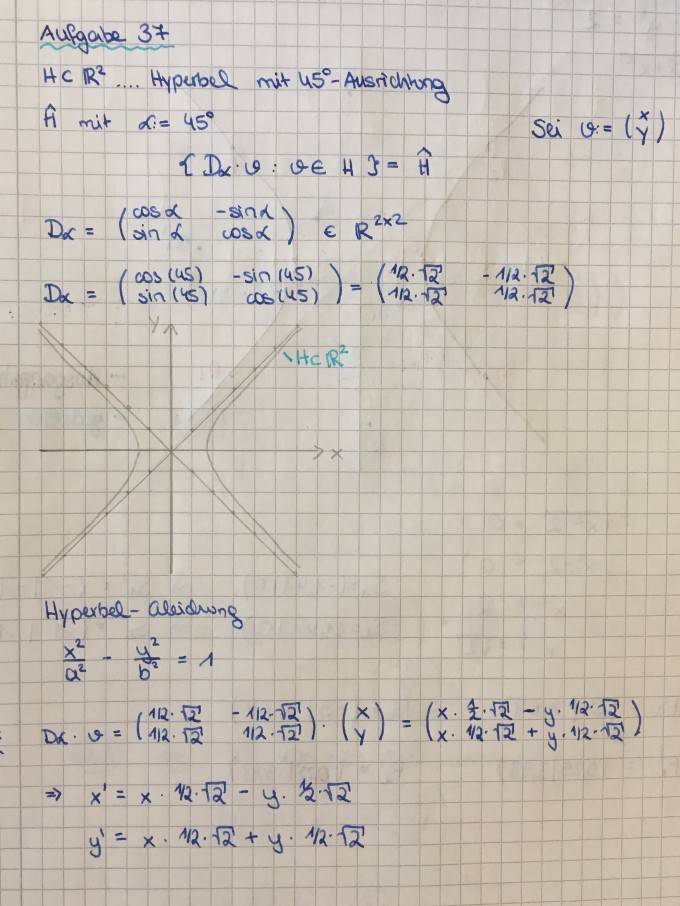 Aufgabe 37
H ⊂ ℝ² .... Hyperbel mit 45°-Ausrichtung
Ĥ mit α := 45°
Sei v := (x y)
{ Dα · v : v ∈ H } = Ĥ
Dα = (cos α -sin α
sin α cos α) ∈ ℝ^2x2
Dα = (cos(45) -sin(45)
sin(45) cos(45)) = (1/2·√2 -1/2·√2
1/2·√2 1/2·√2)
y
H ⊂ ℝ²
x
Hyperbel-Gleichung
x²/a² - y²/b² = 1
Dα · v = (1/2·√2 -1/2·√2
1/2·√2 1/2·√2) · (x y) = (x · 1/2·√2 - y · 1/2·√2
x · 1/2·√2 + y · 1/2·√2)
⇒ x' = x · 1/2·√2 - y · 1/2·√2
y' = x · 1/2·√2 + y · 1/2·√2